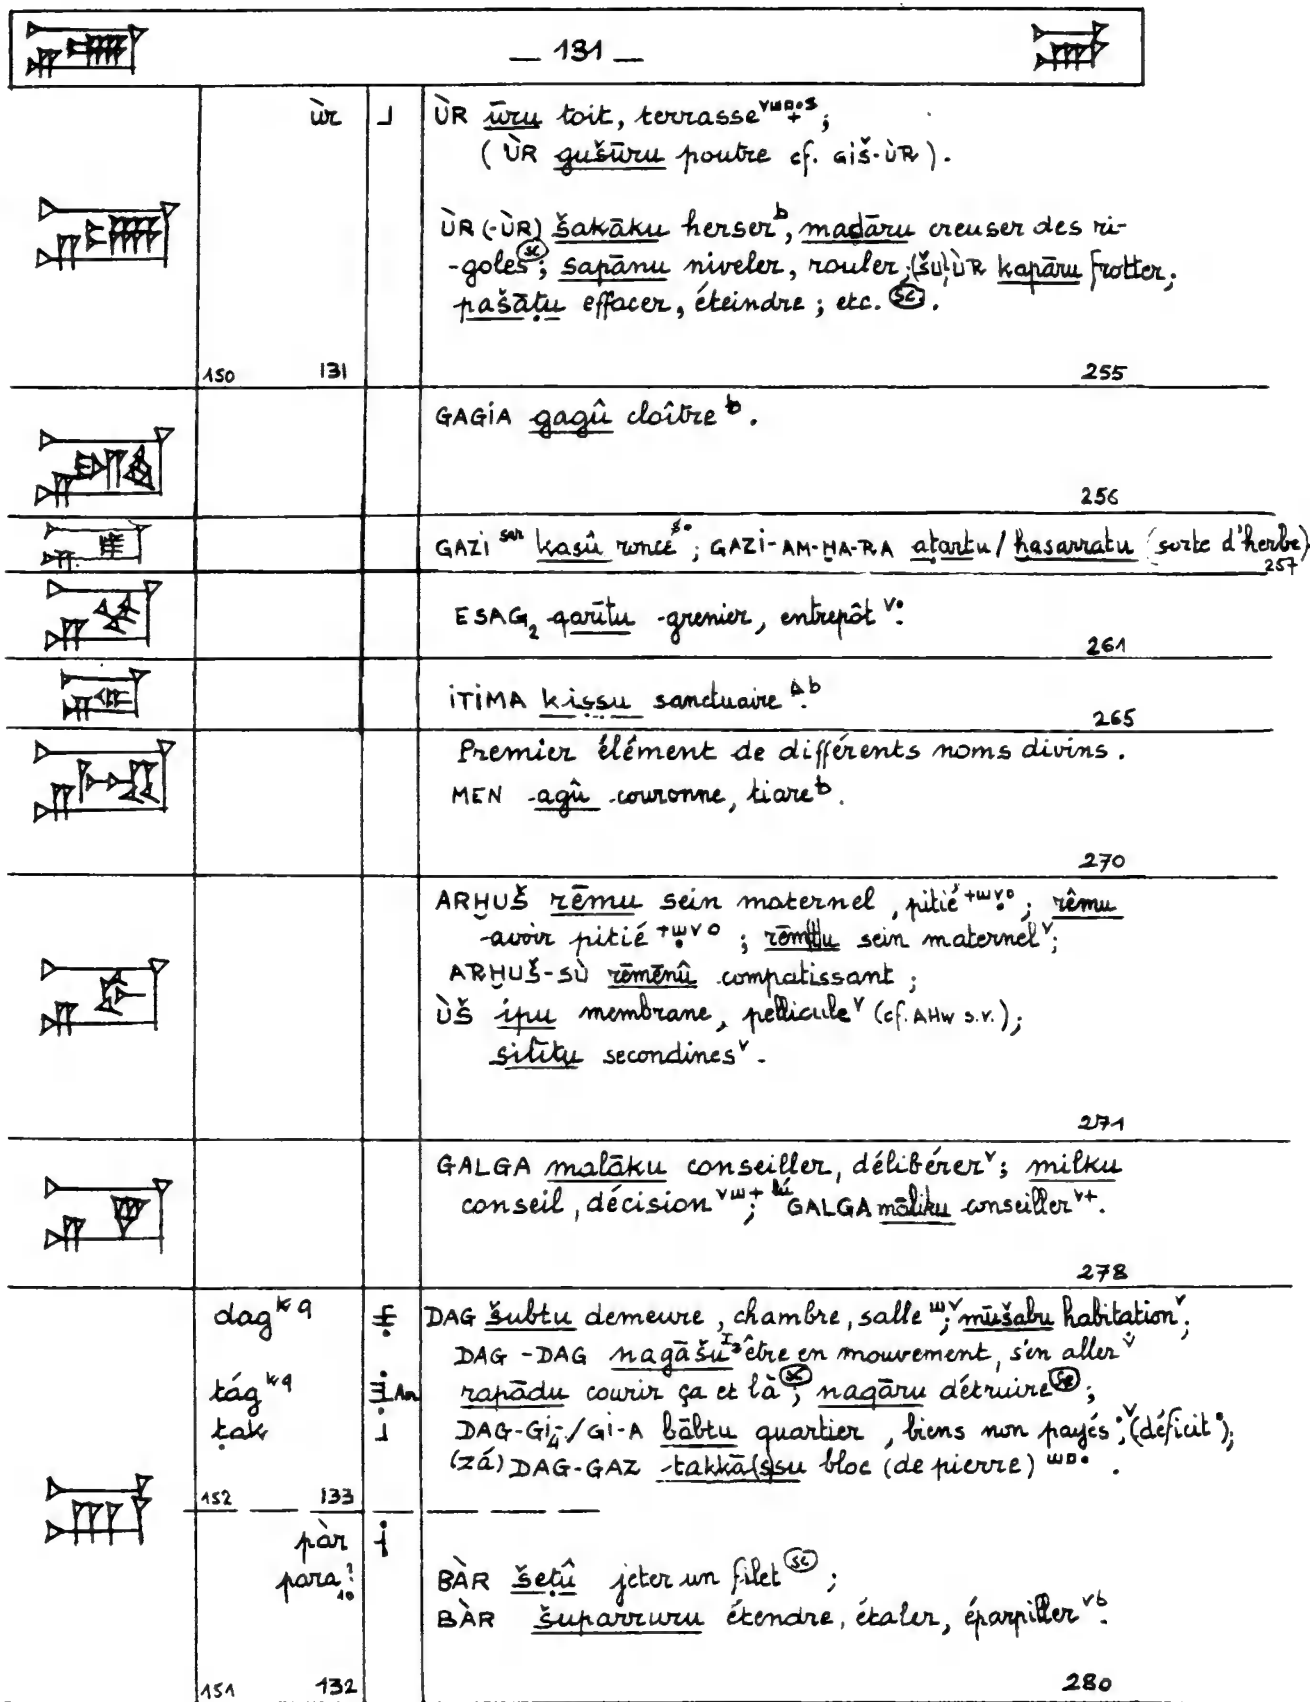 — 131 —
ùr ÙR ūru toit, terrasse;
(ÙR gušūru poutre cf. GIŠ-ÙR).
ÙR (-ÙR) šakāku herser b, madāru creuser des ri-
-goles sc; sapānu niveler, rouler; (šu)ÙR kapāru frotter;
pašāṭu effacer, éteindre; etc. sc.
150 131 255
GAGIA gagû cloître b.
256
GAZI sar kasû ronce; GAZI-AM-ḪA-RA aṭartu / ḫasarratu (sorte d'herbe)
257
ESAG₂ qarītu grenier, entrepôt v.
261
ITIMA kiṣṣu sanctuaire b
265
Premier élément de différents noms divins.
MEN agû couronne, tiare b.
270
ARḪUŠ rēmu sein maternel, pitié; rêmu
avoir pitié; sein maternel v;
ARḪUŠ-SÙ rēmēnû compatissant;
ÙŠ ipu membrane, pellicule v (cf. AHw s.v.);
silītu secondines v.
271
GALGA malāku conseiller, délibérer v; milku
conseil, décision; lú GALGA māliku conseiller v+.
278
dag k q DAG šubtu demeure, chambre, salle; mūšabu habitation v;
DAG-DAG nagāšu être en mouvement, s'en aller v
tág k q rapādu courir ça et là sc; naqāru détruire sc;
ṭak DAG-GI₄-/GI-A bābtu quartier, biens non payés; v (déficit);
(zá) DAG-GAZ takkā(s)su bloc (de pierre).
152 133
pàr
para₁₀? BÀR šeṭû jeter un filet sc;
BÀR šuparruru étendre, étaler, éparpiller vb.
151 132 280